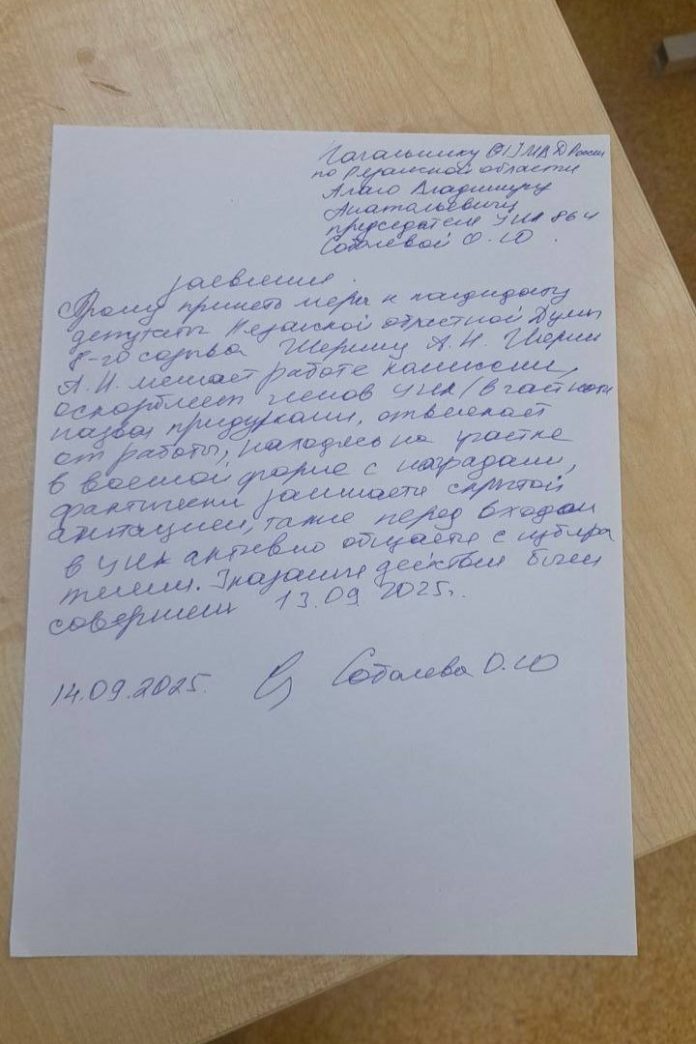 Начальнику УМВД России
по Рязанской области
Алаю Владимиру
Анатольевичу
председателя УИК 864
Соболевой О.Ю.
заявление.
Прошу принять меры к кандидату
депутаты Рязанской областной Думы
8-го созыва Шерину А.Н. Шерин
А.Н. мешает работе комиссии,
оскорбляет членов УИК (в частности
назвал придурками, отвлекает
от работы, находясь на участке
в военной форме с наградами,
фактически занимается скрытой
агитацией, также перед входом
в УИК активно общается с избира
телями. Указанные действия были
совершены 13.09 2025г.
14.09.2025. Соболева О.Ю